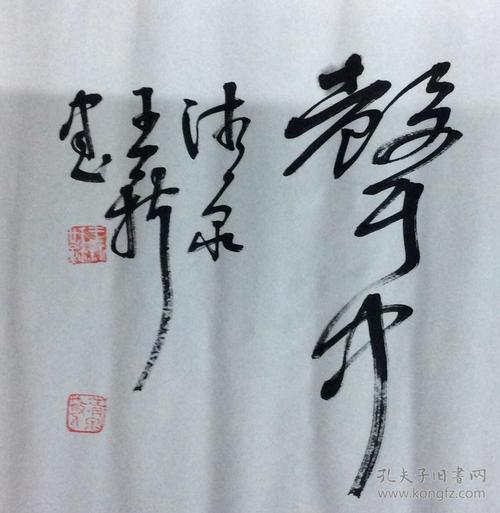 聲中
清泉
王新
書
孔夫子旧书网
www.kongfz.com